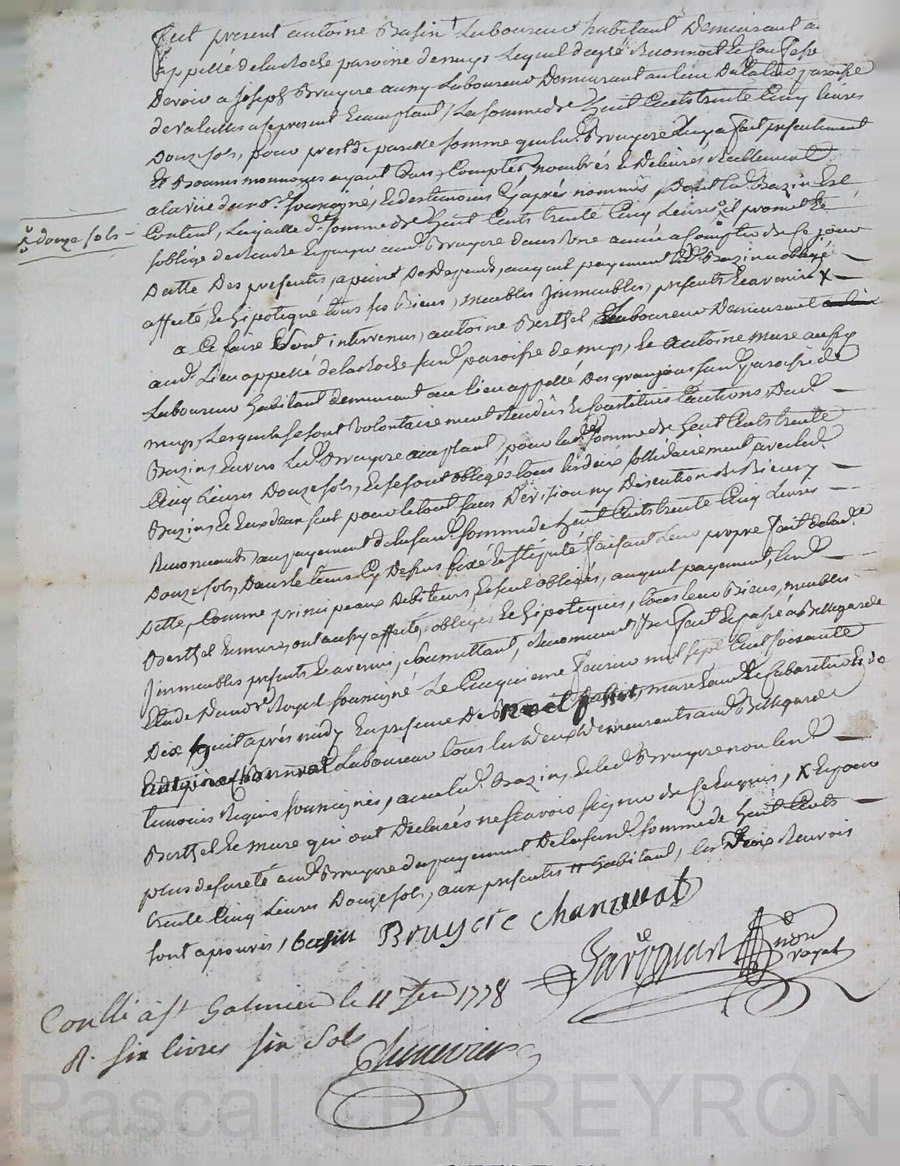 fut présent antoine Basin Laboureur habitant Demeurant a
appellé delaroche paroisse demys Lequel degré Reconnoit Et Confesse
Devoir a Joseph Bruyere aussy Laboureur Demeurant au Lieu Dela paroisse
de present Eacceptant, La somme de huit Cents trente Cinq livres
Douze sols, pour prest de pareille somme que led. Bruyere Luy a fait presentement
En Bonnes monnoyes ayant Cours, Comptés, nombrés & Delivrés Reellement
a la vüe du no.re soussigné, & des temoins Cy après nommés, Dont led. Basin Est
Content, Laquelle d. somme de huit Cents trente Cinq Livres x il promet &
x douze sols
soblige de Rendre Et payer aud. Bruyere dans Une année a Compter de Ce jour
Datte Des presentes, a peine De Depens, auquel payement led. Basin a obligé
affecté, & hipotequé tous ses Biens, meubles, jmmeubles, presents & avenirs x
a Ce faire Sont intervenus, antoine Berthel Laboureur Demeurant
aud. Lieu appellé delaroche susd. paroisse de mys, & antoine mure aussy
Laboureur habitant demeurant au lieu appellé Des granjeas susd. paroisse de
mys, Lesquels se sont Volontairement Rendus & Constitués Cautions, Dud.
Basin, Envers Led. Bruyere acceptant, pour lad. Somme de huit Cents trente
Cinq Livres Douze sols, & se sont obligés tous les deux sollidairement avec led.
Basin, & L'un deux seul pour le tout sans Division ny Discution de Biens y
Renonceants au payement de la susd. somme de huit Cents trente Cinq Livres
Douze sols, Dans le terme Cy Dessus fixé & stipulé faisant Leur propre fait de lad.
Dette, Comme principeaux Debiteurs & seul obligés, auquel payement, lesd.
Berthel & mure, ont aussy affecté, obligés & hipotequés, tous leurs Biens, meubles
jmmeubles presents & avenirs, Soumettant, Renonceant, fait & passé a Bellegarde
Etude Du no.re Royal soussigné Le Cinquieme fevrier mil sept Cent soixante
Dix huit après midy En presence De noel marchand & Cabaretier & de
antoine Chanavat Laboureur tous les deux Demeurants aud. Bellegarde
temoins Requis soussignés, avec led. Basin, & led. Bruyere non lesd.
Berthel & mure qui ont Declarés ne scavoir signer de Ce Enquis, x & pour
plus de sureté aud. Bruyere du payement De la susd. somme de huit Cents
trente Cinq Livres Douze sols, aux presentes # habitant, les trois Renvois
sont aprouvés, basin Bruyere Chanavat
no.re
royal
Conllé a St Galmier le 11 fevr 1778
R. six livres six sols
Pascal CHAREYRON